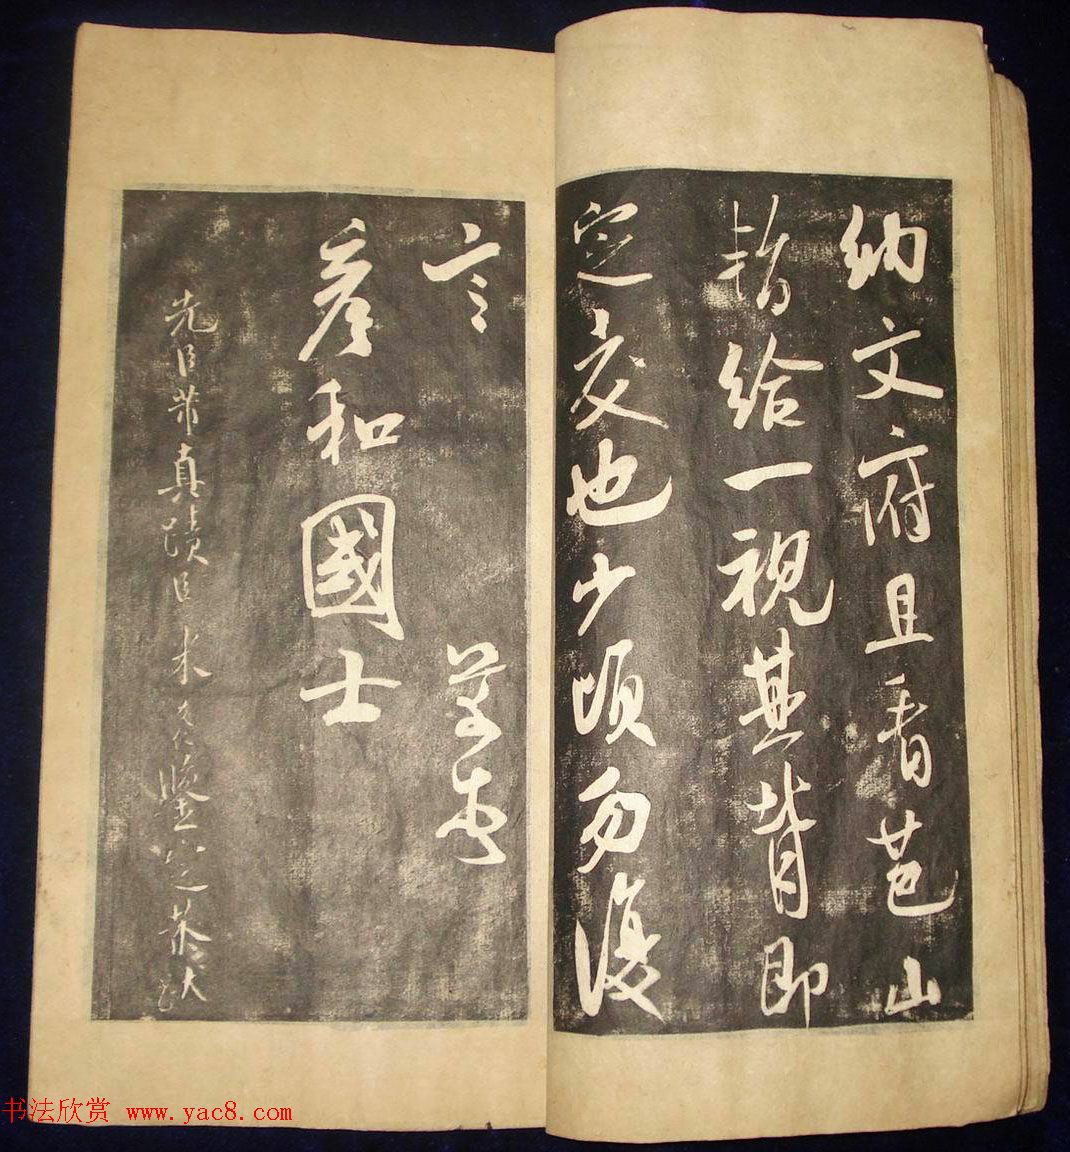 納文府且看芭山
暫給一視其背即
定交也少頃勿復
言 芾頓首
彥和國士
先臣芾真蹟臣米友仁鑒定恭跋
书法欣赏 www.yac8.com